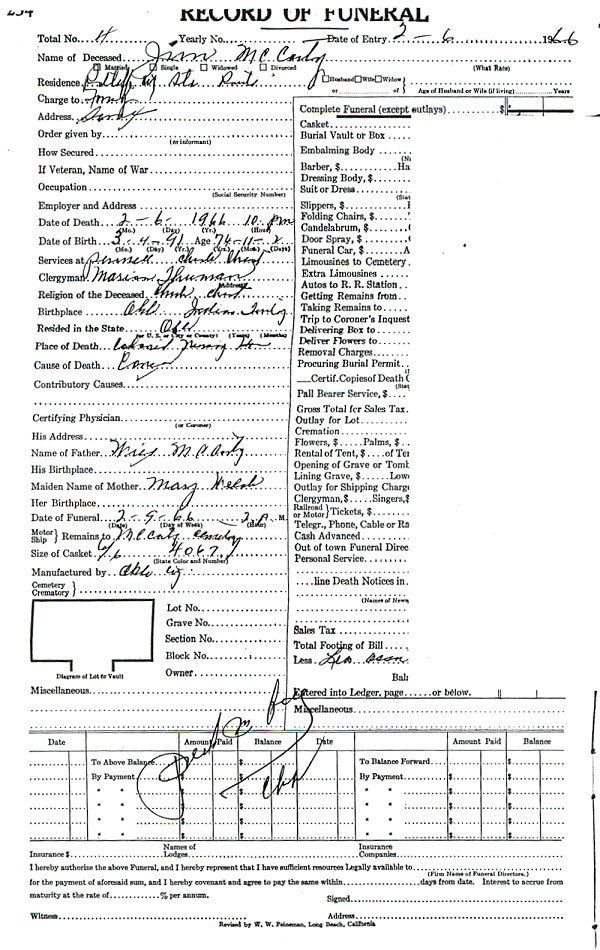 RECORD OF FUNERAL
Total No. 4 Yearly No. Date of Entry 2 - 6 1966
Name of Deceased Jim McCarty
Married Single Widowed Divorced (What Rate)
Residence Rt Husband Wife Widow
or of Age of Husband or Wife (if living) Years
Charge to
Address
Order given by
(or informant)
How Secured
If Veteran, Name of War
Occupation
(Social Security Number)
Employer and Address
Date of Death 2 - 6 - 1966 10 PM
(Mo.) (Day) (Yr.) (Hour)
Date of Birth 3 - 4 - 91 Age 74 - 11 - 2
(Mo.) (Day) (Yr.) (Yrs.) (Mos.) (Days)
Services at
Clergyman Marion Thurman
Address
Religion of the Deceased
Birthplace Okla Indian
Resided in the State Okla
(or U. S. or City or County) (Years) (Months)
Place of Death
Cause of Death
Contributory Causes
Certifying Physician
(or Coroner)
His Address
Name of Father McCarty
His Birthplace
Maiden Name of Mother Mary Welch
Her Birthplace
Date of Funeral 2 - 9 - 66 2 P. M.
(Date) (Day of Week) (Hour)
Motor
Ship } Remains to McCarty
Size of Casket 6/6 4067
(State Color and Number)
Manufactured by Okla
Cemetery
Crematory }
Lot No.
Grave No.
Section No.
Block No.
Owner
Diagram of Lot or Vault
Miscellaneous
Complete Funeral (except outlays) $
Casket
Burial Vault or Box
Embalming Body
(N
Barber, $ Ha
Dressing Body, $
Suit or Dress
(Stat
Slippers, $ I
Folding Chairs, $
Candelabrum, $
Door Spray, $
Funeral Car, $ A
Limousines to Cemetery
Extra Limousines
Autos to R. R. Station
Getting Remains from
Taking Remains to
Trip to Coroner's Inquest
Delivering Box to
Deliver Flowers to
Removal Charges
Procuring Burial Permit
Certif. Copies of Death C
(Stat
Pall Bearer Service, $
Gross Total for Sales Tax
Outlay for Lot
Cremation
Flowers, $ Palms, $
Rental of Tent, $ of Ter
Opening of Grave or Tomb
Lining Grave, $ Low
Outlay for Shipping Charge
Clergyman, $ Singers, $
Railroad
or Motor } Tickets, $
Telegr., Phone, Cable or Ra
Cash Advanced
Out of town Funeral Direc
Personal Service
line Death Notices in
(Names of News
Sales Tax
Total Footing of Bill
Less
Bala
Entered into Ledger, page or below.
Miscellaneous
Date Amount Paid Balance Date Amount Paid Balance
To Above Balance $ To Balance Forward
By Payment $ By Payment $
" " $ " " $
" " $ " " $
" " $ " " $
" " $ " " $
Insurance $ Names of Lodges Insurance Companies
I hereby authorize the above Funeral, and I hereby represent that I have sufficient resources Legally available to
(Firm Name of Funeral Directors.)
for the payment of aforesaid sum, and I hereby covenant and agree to pay the same within days from date. Interest to accrue from
maturity at the rate of % per annum. Signed
Witness Address
Revised by W. W. Feineman, Long Beach, California